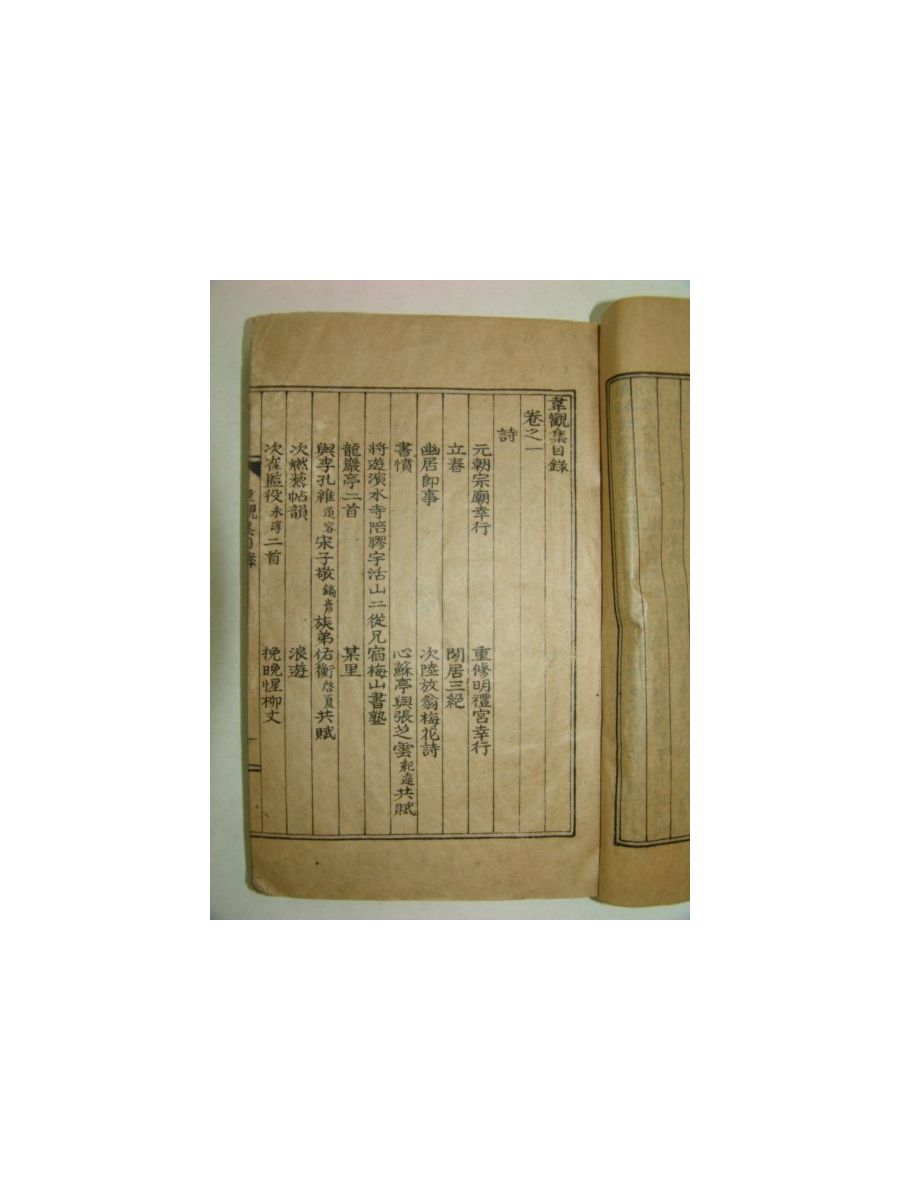 韋觀集目錄
卷之一
詩
元朝宗廟幸行 重修明禮宮幸行
立春 閒居三絶
幽居卽事 次陸放翁梅花詩
書憤 心蘇亭與張芝雲紀遠共賦
將遊濱水寺陪膠宇活山二從兄宿梅山書塾
龍巖亭二首 某里
與李孔維蓮容宋子敬鎬彦族弟佑衡啓夏共賦
次燃藜帖韻 浪遊
次崔監役永諄二首 挽晩惺柳丈